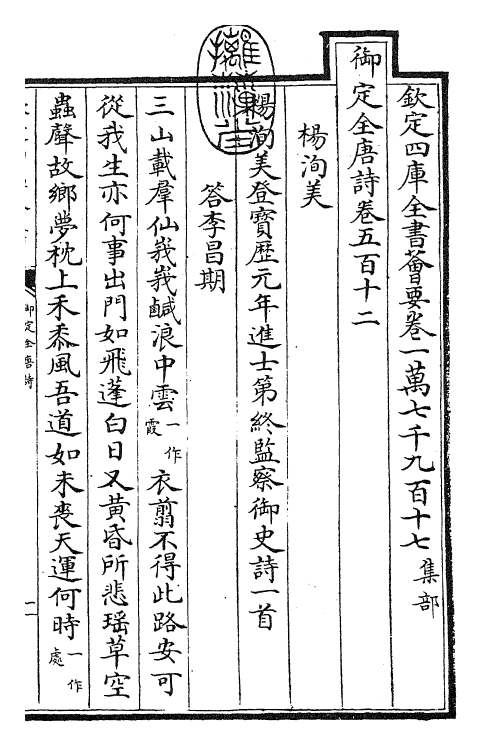 欽定四庫全書薈要卷一萬七千九百十七 集部
御定全唐詩卷五百十二
楊洵美
楊洵美登寶歷元年進士第終監察御史詩一首
答李昌期
三山載羣仙峩峩鹹浪中雲一作霞衣翦不得此路安可
從我生亦何事出門如飛蓬白日又黃昏所悲瑶草空
蟲聲故鄉夢枕上禾黍風吾道如未喪天運何時一作處
御定全唐詩
一